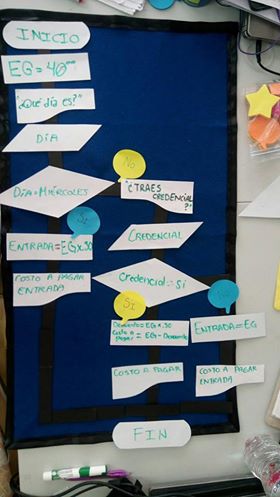 INICIO
EG = 40⁰⁰
"¿Qué día es?"
DÍA
DÍA = MIÉRCOLES
No
"¿TRAES
CREDENCIAL
?"
Si
CREDENCIAL
ENTRADA = EG x .50
COSTO A PAGAR
ENTRADA
Credencial = Si
Si
No
Descuento = EG x .50
Costo a
pagar = EG - Descuento
ENTRADA = EG
COSTO A PAGAR
COSTO A PAGAR
ENTRADA
FIN